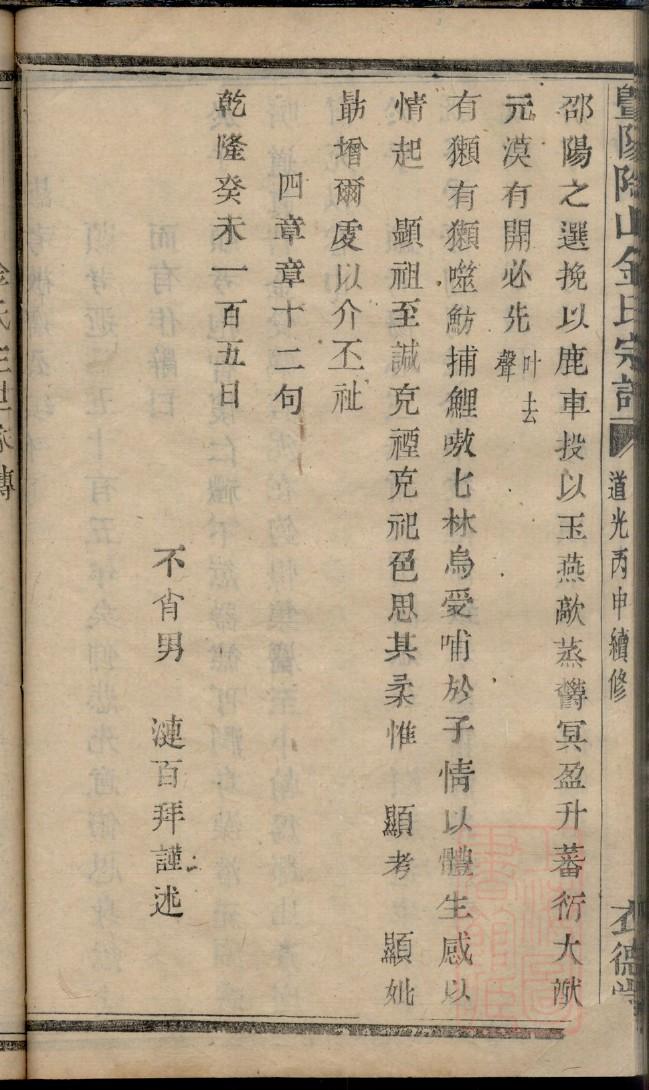 暨陽陶山金氏宗譜 道光丙申續修
邵陽之選挽以鹿車投以玉燕歊蒸欝冥盈升蕃衍大猷
元漠有開必先叶去聲
有獺有獺噬魴捕鯉嗷七林烏受哺於子情以體生感以
情起 顯祖至誠克禋克祀色思其柔惟 顯考 顯妣
勗增爾虔以介丕祉
四章章十二句
乾隆癸未一百五日
不肖男 漣百拜謹述